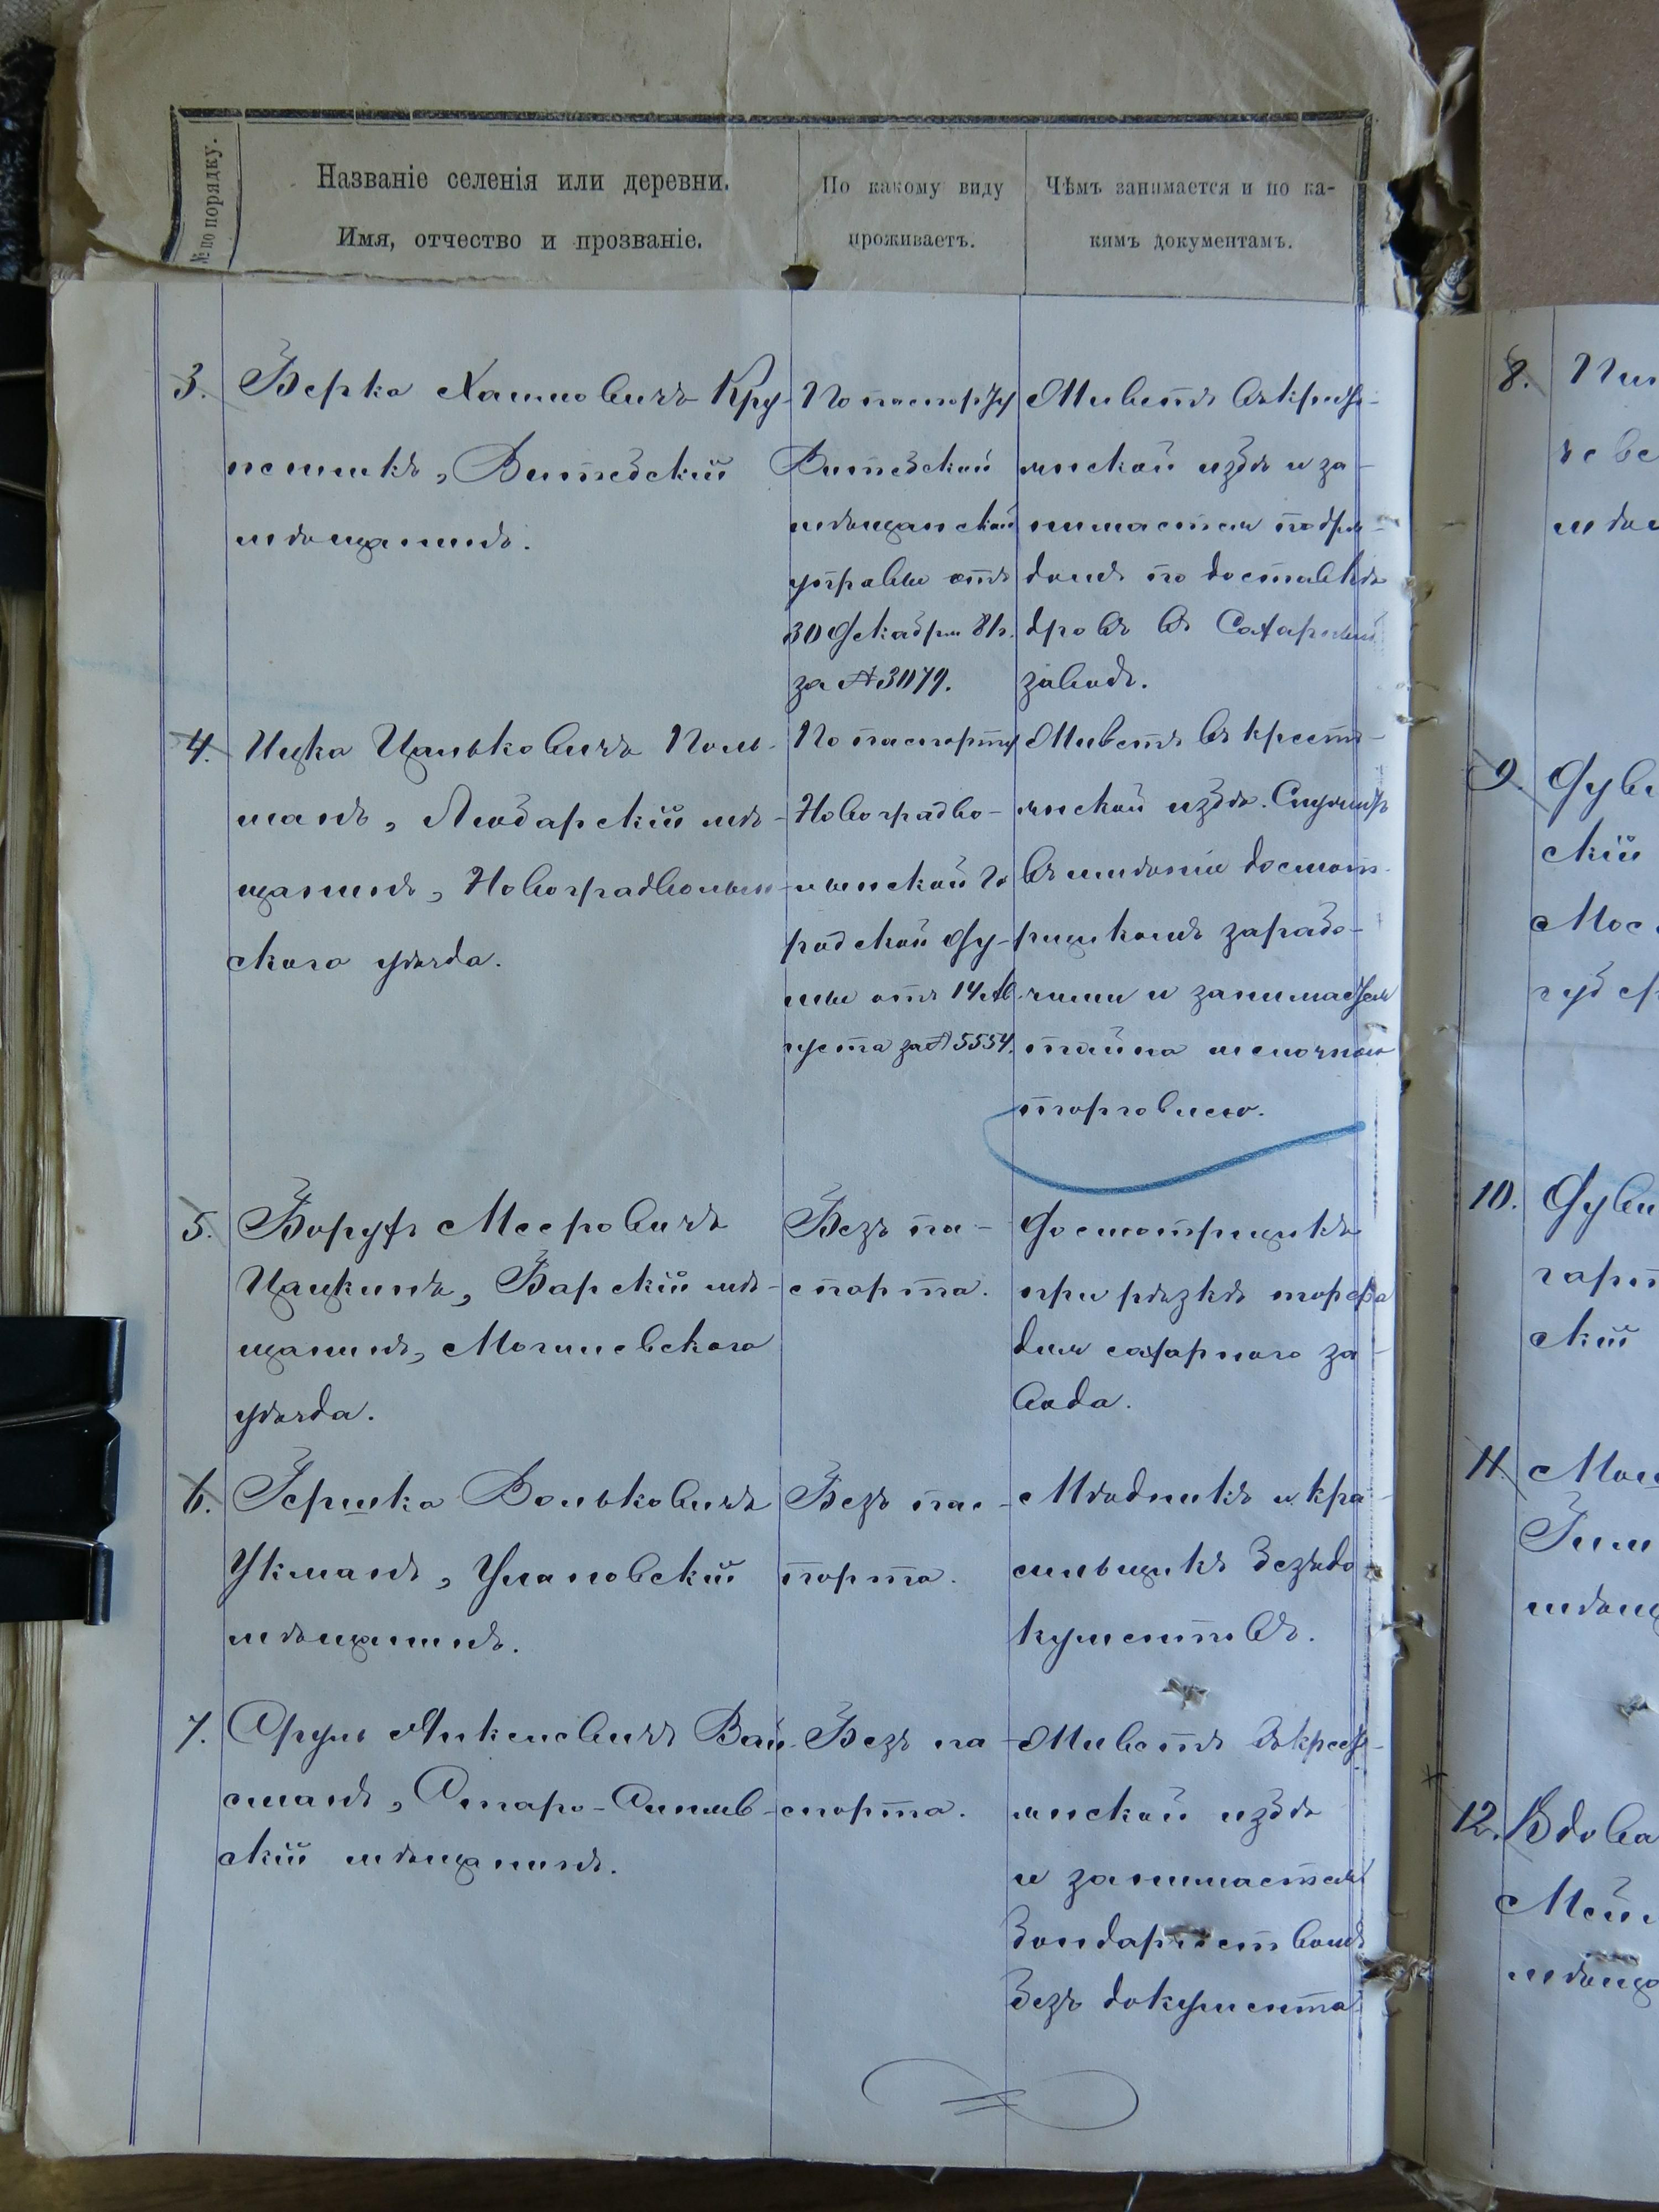 № по порядку.
Названіе селенія или деревни.
Имя, отчество и прозваніе.
По какому виду
проживаетъ.
Чѣмъ занимается и по ка-
кимъ документамъ.
3. Берко Хаимовичъ Кру-
пникъ, Витебскій
мѣщанинъ.
По паспорту
Витебской
мѣщанской
управы отъ
30 Декабря 81г.
за №
Живетъ въ кресть-
янской избѣ и за-
нимается подря-
домъ по доставкѣ
дровъ въ Сахарный
заводъ.
4. Ицко Ицьковичъ Поль-
манъ, Любарскій мѣ-
щанинъ, Новоградволын-
ского уѣзда.
По паспорту
Новоградво-
лынской Го
родской Ду-
мы отъ 14 Ав
густа за № 5554.
Живетъ въ кресть-
янской избѣ. Служитъ
въ имѣніи досмот-
рщикомъ за рабо-
чими и занимается
тайно мелочною
торговлею.
5. Борухъ Мееровичъ
Цацкинъ, Барскій мѣ-
щанинъ, Могилевского
уѣзда.
Безъ па-
спорта.
Досмотрщикъ
при рѣзкѣ торфа
для сахарного за-
вода.
6. Гершко Вольковичъ
Укманъ, Улановскій
мѣщанинъ.
Безъ пас-
порта.
Мѣдникъ и кра-
сильщикъ безъ до
кументовъ.
7. Сруль Вай
сманъ, Старо-Синяв-
скій мѣщанинъ.
Безъ па
спорта.
Живетъ въ кресть-
янской избѣ
и занимается
бондарствомъ
безъ документа
8.
9.
скій
10.
скій
11.
12. Вдова